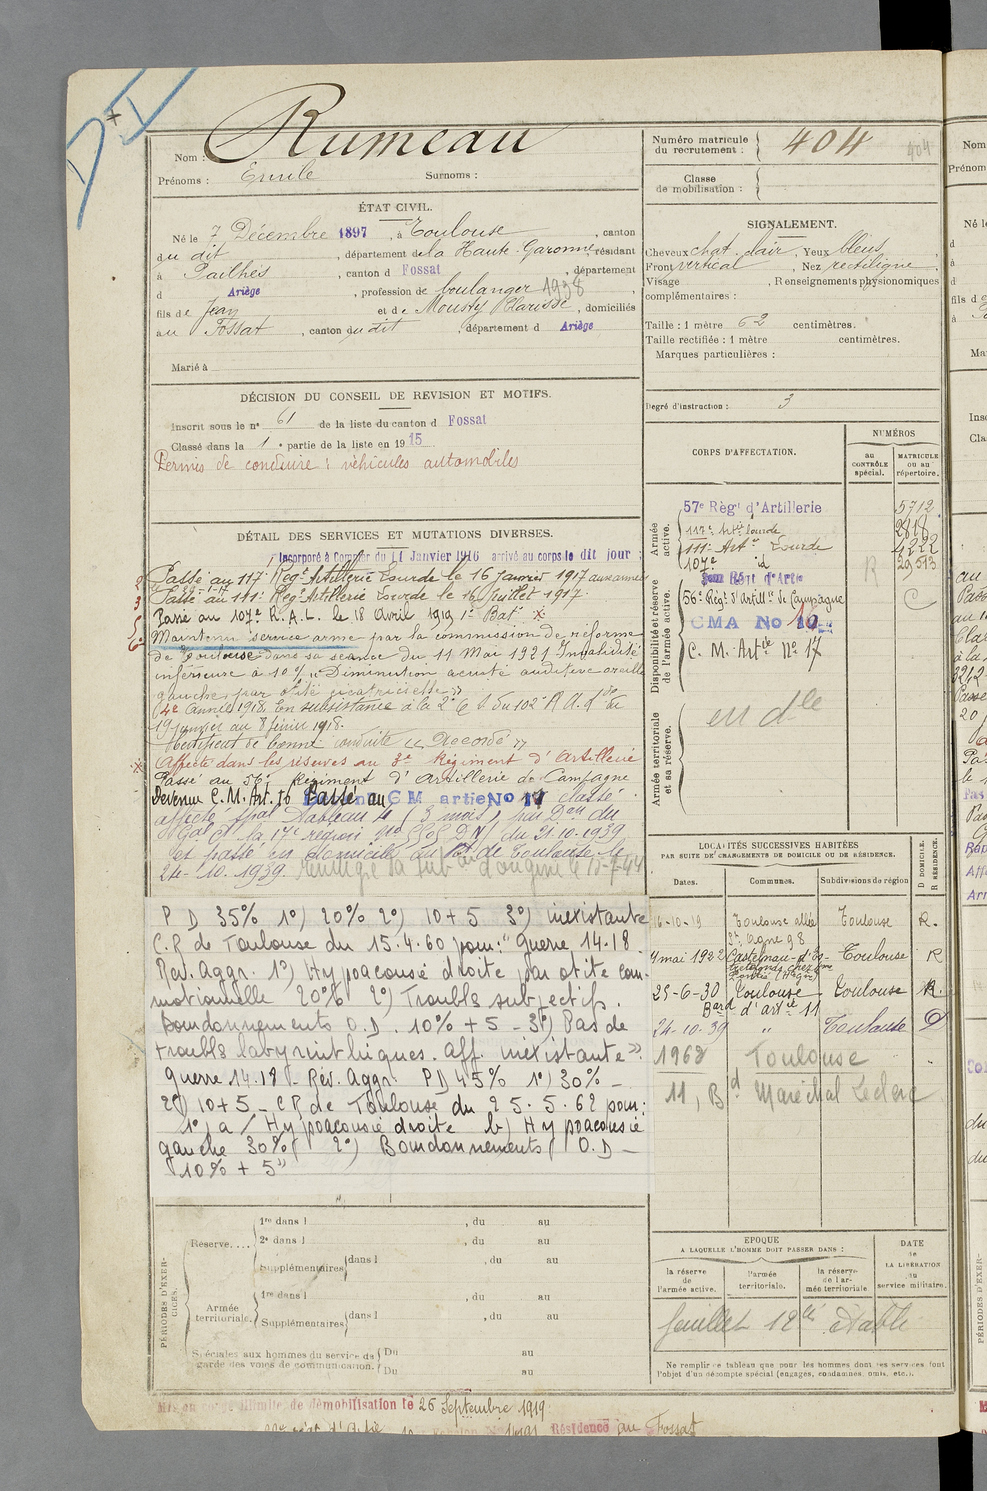 Nom : Rumeau
Prénoms : Emile Surnoms :
ÉTAT CIVIL.
Né le 7 Décembre 1897, à Toulouse, canton
du dit, département de la Haute-Garonne, résidant
à Pailhès, canton d Fossat, département
d Ariège, profession de boulanger 1938
fils de Jean et de Mousty Clarisse, domiciliés
au Fossat, canton du dit, département d Ariège
Marié à
DÉCISION DU CONSEIL DE REVISION ET MOTIFS.
Inscrit sous le n° 61 de la liste du canton d Fossat
Classé dans la 1e partie de la liste en 1915
Permis de conduire : véhicules automobiles
DÉTAIL DES SERVICES ET MUTATIONS DIVERSES.
Incorporé à Compter du 11 Janvier 1916 arrivé au corps le dit jour
Passé au 117e Régt Artillerie Lourde le 16 janvier 1917 aux armées
Passé au 111e Régt Artillerie Lourde le 16 Juillet 1917.
Passé au 107e R.A.L. le 18 Avril 1919 1e Batie
Maintenu service armé par la commission de réforme
de Toulouse dans sa séance du 11 Mai 1921 Invalidité
inférieure à 10% "Diminution acuité auditive oreille
gauche par otite cicatricielle"
(4e année 1918. En subsistance à la du 102e R A. L du
19 janvier au 8 février 1918.
Certificat de bonne conduite "Accordé"
Affecté dans les réserves au 3e Régiment d'Artillerie
Passé au 56e Régiment d'Artillerie de Campagne
Devenu C.M. Art. 16 Passé au CM artie No 17 classé
affecté spal Tableau 4 (3 mois) par Don du
Gal Ct la 17e région du 21.10.1939
et passé en domicile au Bau de Toulouse le
24-10.1939. Réintègre sa subon d'origine le 10-7-44
P D 35% 1°) 20% 2°) 10+5 3°) inexistante
C.R de Toulouse du 15.4.60 pour: "Guerre 14-18.
Rev. Aggr. 1°) Hypoacousie droite par otite com-
motionnelle 20% 2°) Troubles subjectifs.
Bourdonnements O.D. 10% + 5 - 3°) Pas de
troubles labyrinthiques. Aff. inexistante"
Guerre 14.18 - Rév. Aggr. PD 45% 1°) 30% -
2°) 10+5 - CR de Toulouse du 25.5.62 pour:
"1°) a/ Hypoacousie droite b) Hypoacousie
gauche 30% 2°) Bourdonnements O.D -
10% + 5"
PÉRIODES D'EXERCICES.
Réserve....
1re dans l , du au
2e dans l , du au
Supplémentaires dans l , du au
Armée territoriale.
1re dans l , du au
Supplémentaires dans l , du au
Spéciales aux hommes du service de garde des voies de communication.
Du au
Du au
Mis en congé illimité de démobilisation le 26 Septembre 1919
Résidence au Fossat
Numéro matricule du recrutement : 404 404
Classe de mobilisation :
SIGNALEMENT.
Cheveux chat. clair, Yeux bleus,
Front vertical, Nez rectiligne,
Visage , Renseignements physionomiques
complémentaires :
Taille : 1 mètre 62 centimètres.
Taille rectifiée : 1 mètre centimètres.
Marques particulières :
Degré d'instruction : 3
CORPS D'AFFECTATION.
NUMÉROS
au CONTRÔLE spécial.
MATRICULE ou au répertoire.
Armée active.
57e Régt d'Artillerie 5712
117e Artie Lourde 2818
111e Artie Lourde 4222
107e id R 29513
Disponibilité et réserve de l'armée active.
56e Régt d'Artillie de Campagne C
CMA No 16
C. M. Artie No 17
Armée territoriale et sa réserve.
en dle
LOCALITÉS SUCCESSIVES HABITÉES
PAR SUITE DE CHANGEMENTS DE DOMICILE OU DE RÉSIDENCE.
Dates. Communes. Subdivisions de région D DOMICILE. R RÉSIDENCE.
16-10-19 Toulouse allée St Agne 98 Toulouse R.
4 mai 1922 Toulouse R
25-6-30 Toulouse Toulouse R.
Bard d'Arcole 11
24-10-39 " Toulouse D
1962 Toulouse
11, Bd Maréchal Leclerc
EPOQUE
A LAQUELLE L'HOMME DOIT PASSER DANS :
la réserve de l'armée active.
l'armée territoriale.
la réserve de l'armée territoriale
DATE de LA LIBÉRATION du service militaire.
feuillet 12 établi
Ne remplir ce tableau que pour les hommes dont les services font
l'objet d'un décompte spécial (engagés, condamnés, omis, etc.).